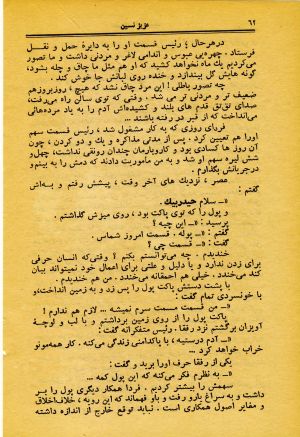 ۶۲ عزیز نسین
درهرحال؛ رئیس قسمت او را به دایرهٔ حمل و نقل
فرستاد. چهره‌یی عبوس و اندامی لاغر و مردنی داشت و ما تصور
می‌کردیم یك ماه نخواهد کشید که او هم مثل ما چاق و چله بشود،
گونه هایش گل بیندازد و خنده روی لبانش جا خوش کند.
چه تصور باطلی! این مرد چاق نشد که هیچ؛ روزبروزهم
ضعیف تر و مردنی تر می شد. وقتی که توی سالن راه می‌رفت،
صدای تق‌تق قدم های بلند و کشیده‌اش آدم را به یاد مرده‌هائی
می‌انداخت که از قبر در رفته باشند ...
فردای روزی که به کار مشغول شد، رئیس قسمت سهم
اورا هم تعیین کرد. پس از مدتی مذاکره و یك و دو کردن، چون
آن روز ها کسادی بود و کاروبارمان چندان رونقی نداشت، چهل‌و
شش لیره سهم او شد و به من مأموریت دادند که دمش را به بینم‌و
درجریانش بگذارم.
عصر، نزدیك های آخر وقت، پیشش رفتم و به‌اش
گفتم:
«ـــ سلام حیدربیك.
و پول را که توی پاکت بود، روی میزش گذاشتم.
پرسید: ـــ این چیه؟
گفتم: «ـــ پوله. قسمت امروز شماس.
گفت: «ـــ قسمت چی؟
خندیدم. چه می‌توانستم بکنم؟ وقتی‌که انسان حرفی
برای زدن ندارد و یا دلیل و علتی برای اعمال خود نمیتواند بیان
کند می‌خندد. خیلی هم احمقانه می‌خندد. من هم خندیدم.
با پشت دستش پاکت پول را پس زد و به زمین انداخت،و
با خونسردی تمام گفت:
«ـــ من قسمت مسمت سرم نمیشه... لازم هم ندارم!
پاکت پول را از روی زمین برداشتم و با لب و لوچهٔ
آویزان برگشتم نزد رفقا. رئیس متفکرانه گفت:
«ـــ آدم درستیه، با پاکدامنی زندگی می‌کنه. کار همه‌مونو
خراب خواهد کرد...
یکی از رفقا حرف اورا برید و گفت:
«ـــ به نظرم فکر می‌کنه که این پول کمه ...
سهمش را بیشتر کردیم. فردا همکار دیگری پول را بر
داشت و به سراغ یارو رفت و باو فهماند که این رویه، خلاف‌اخلاق
و مغایر اصول همکاری است. نباید توقع خارج از اندازه داشته